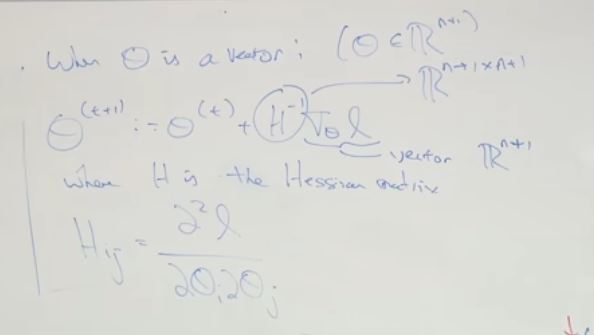 . When Θ is a vector: (Θ ∈ ℝⁿ⁺¹)
ℝⁿ⁺¹ˣⁿ⁺¹
Θ⁽ᵗ⁺¹⁾ := Θ⁽ᵗ⁾ + H⁻¹ ∇_Θ ℓ
vector ℝⁿ⁺¹
where H is the Hessian matrix
H_ij = ∂²ℓ / ∂Θ_i ∂Θ_j